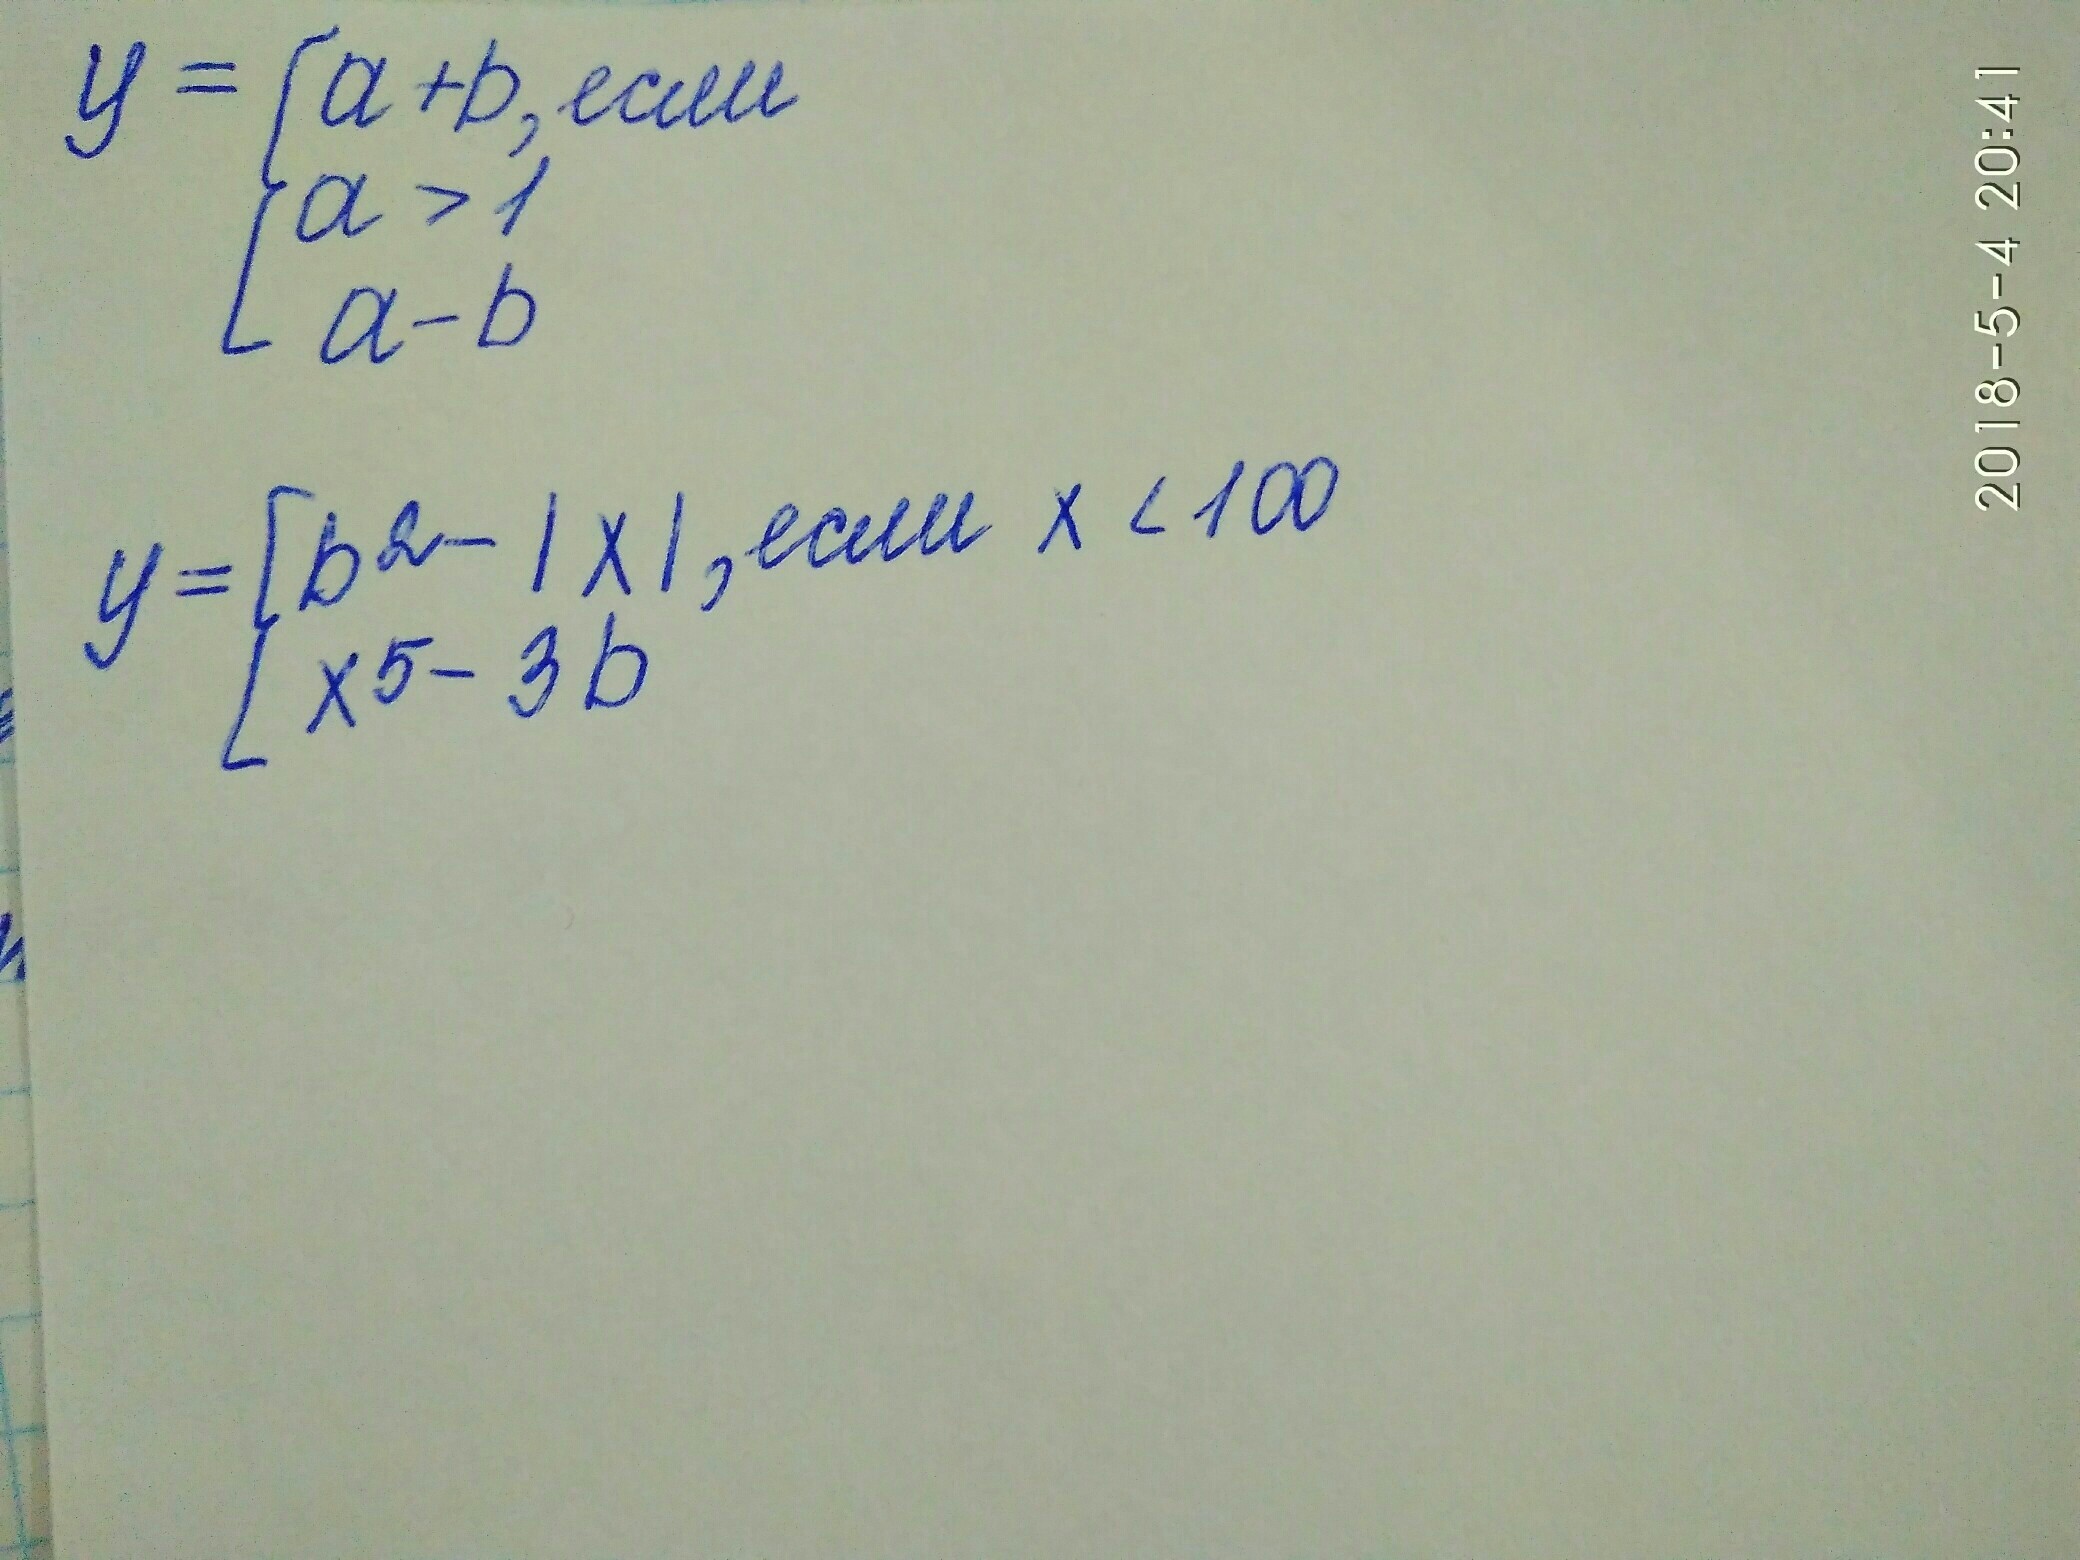 y = { a + b, если
a > 1
a - b
y = { b² - |x|, если x < 100
x⁵ - 3b
2018-5-4 20:41